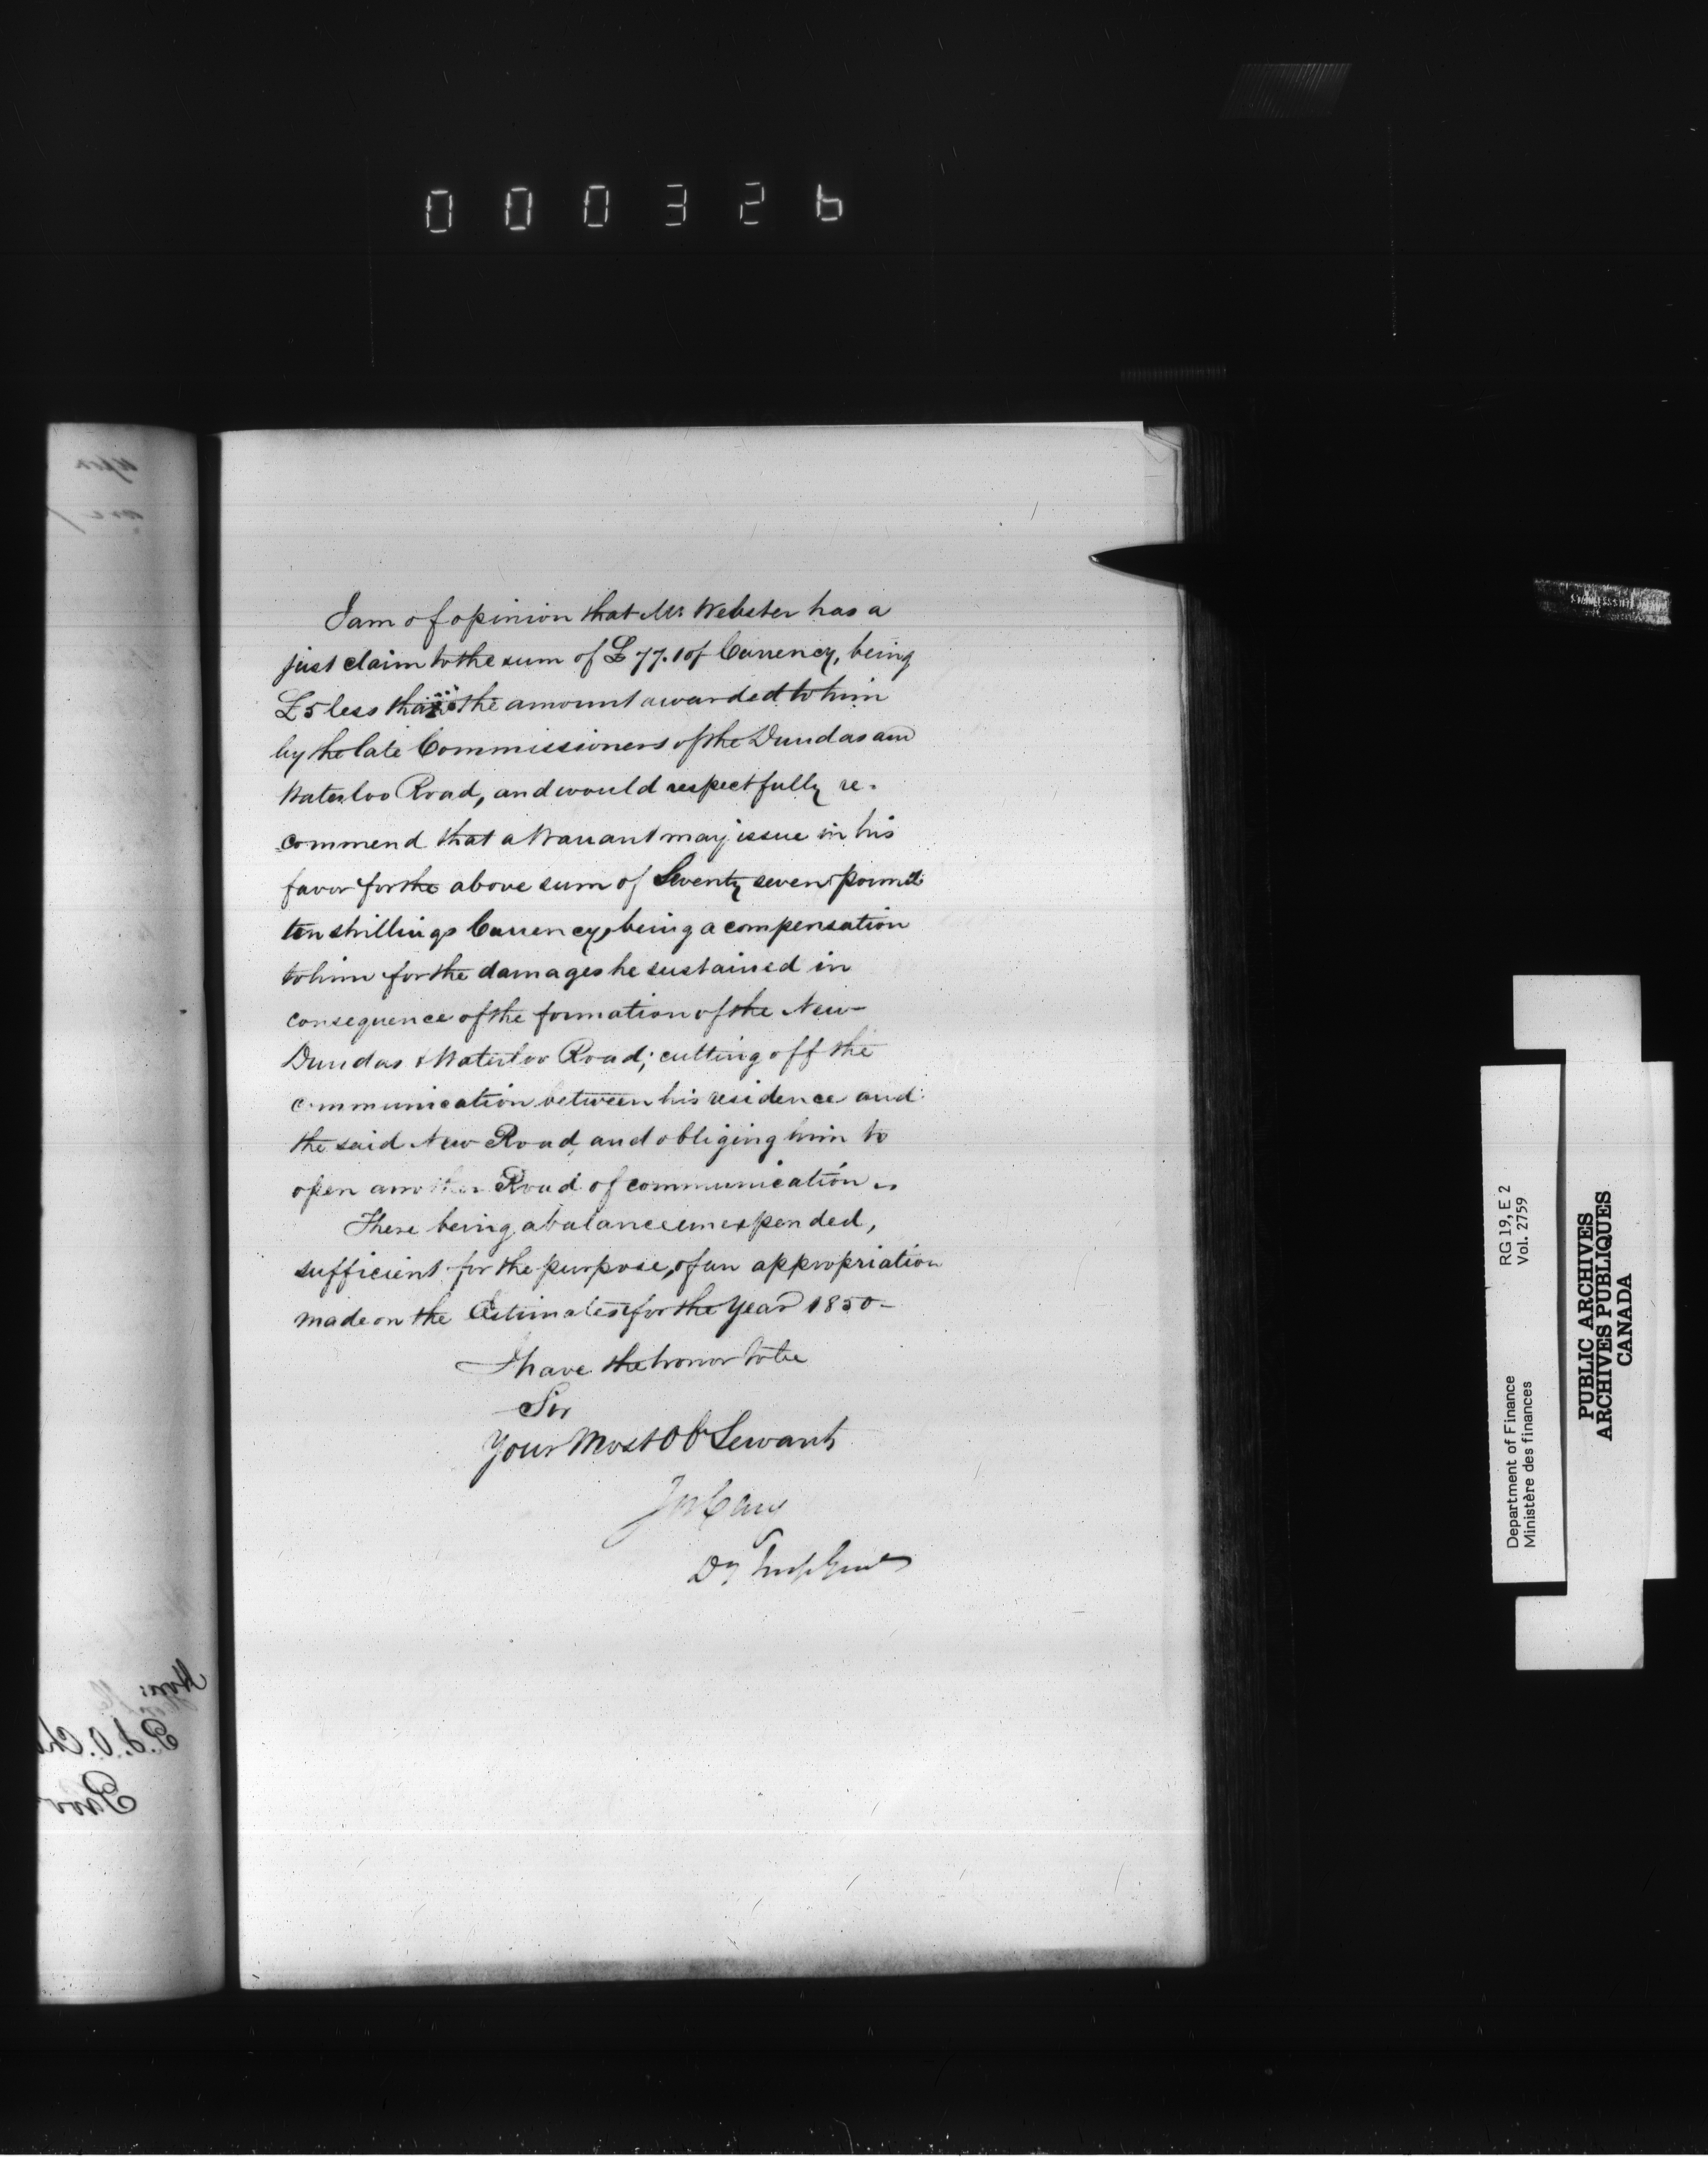 000326
I am of opinion that Mr Webster has a
just claim to the sum of £77.10/ Currency, being
£5 less than the amount awarded to him
by the late Commissioners of the Dundas and
Waterloo Road, and would respectfully re-
commend that a Warrant may issue in his
favor for the above sum of Seventy seven pounds
ten shillings Currency, being a compensation
to him for the damages he sustained in
consequence of the formation of the New
Dundas & Waterloo Road; cutting off the
communication between his residence and
the said New Road, and obliging him to
open another Road of communication
There being a balance unexpended,
sufficient for the purpose, of an appropriation
made on the Estimates for the Year 1850-
I have the honor to be
Sir
Your Most Ob Servant
Jos Cary
Dy Insp Genl
RG 19, E 2
Vol. 2759
Department of Finance
Ministère des finances
PUBLIC ARCHIVES
ARCHIVES PUBLIQUES
CANADA